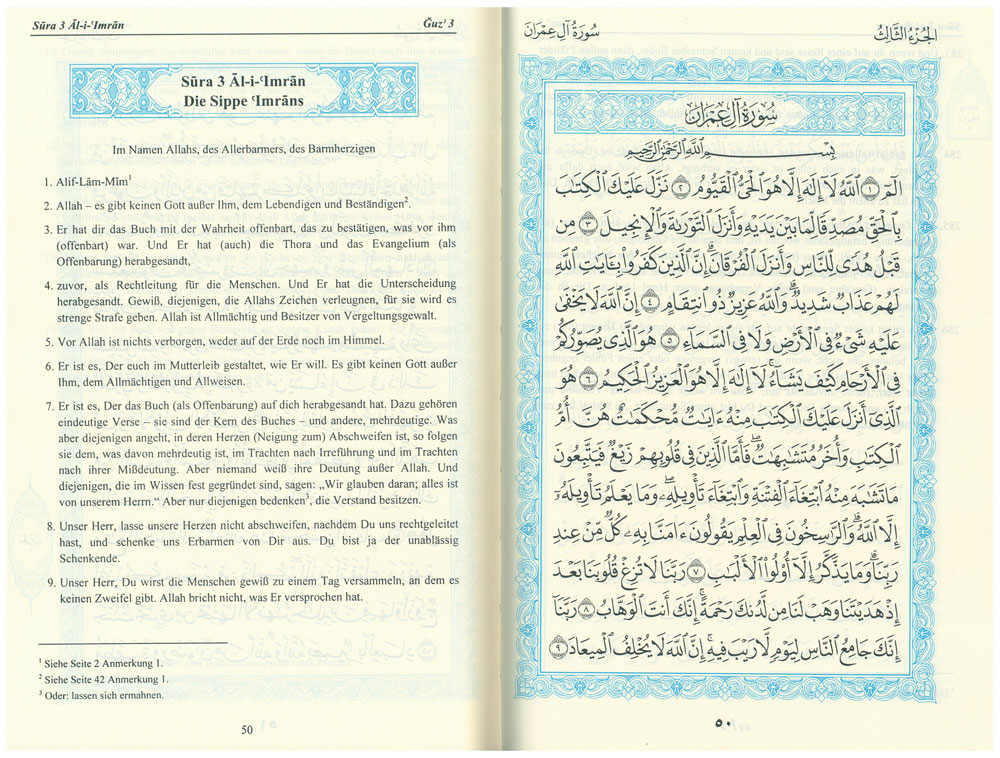 Sūra 3 Āl-i-ʿImrān
Ǧuzʾ 3
Sūra 3 Āl-i-ʿImrān
Die Sippe ʿImrāns
Im Namen Allahs, des Allerbarmers, des Barmherzigen
1. Alif-Lām-Mīm¹
2. Allah – es gibt keinen Gott außer Ihm, dem Lebendigen und Beständigen².
3. Er hat dir das Buch mit der Wahrheit offenbart, das zu bestätigen, was vor ihm
(offenbart) war. Und Er hat (auch) die Thora und das Evangelium (als
Offenbarung) herabgesandt,
4. zuvor, als Rechtleitung für die Menschen. Und Er hat die Unterscheidung
herabgesandt. Gewiß, diejenigen, die Allahs Zeichen verleugnen, für sie wird es
strenge Strafe geben. Allah ist Allmächtig und Besitzer von Vergeltungsgewalt.
5. Vor Allah ist nichts verborgen, weder auf der Erde noch im Himmel.
6. Er ist es, Der euch im Mutterleib gestaltet, wie Er will. Es gibt keinen Gott außer
Ihm, dem Allmächtigen und Allweisen.
7. Er ist es, Der das Buch (als Offenbarung) auf dich herabgesandt hat. Dazu gehören
eindeutige Verse – sie sind der Kern des Buches – und andere, mehrdeutige. Was
aber diejenigen angeht, in deren Herzen (Neigung zum) Abschweifen ist, so folgen
sie dem, was davon mehrdeutig ist, im Trachten nach Irreführung und im Trachten
nach ihrer Mißdeutung. Aber niemand weiß ihre Deutung außer Allah. Und
diejenigen, die im Wissen fest gegründet sind, sagen: „Wir glauben daran; alles ist
von unserem Herrn.“ Aber nur diejenigen bedenken³, die Verstand besitzen.
8. Unser Herr, lasse unsere Herzen nicht abschweifen, nachdem Du uns rechtgeleitet
hast, und schenke uns Erbarmen von Dir aus. Du bist ja der unablässig
Schenkende.
9. Unser Herr, Du wirst die Menschen gewiß zu einem Tag versammeln, an dem es
keinen Zweifel gibt. Allah bricht nicht, was Er versprochen hat.
¹ Siehe Seite 2 Anmerkung 1.
² Siehe Seite 42 Anmerkung 1.
³ Oder: lassen sich ermahnen.
50
الجزء الثالث
سورة آل عمران
سورة آل عمران
بِسْمِ اللَّهِ الرَّحْمَٰنِ الرَّحِيمِ
الٓمٓ ١ ٱللَّهُ لَآ إِلَٰهَ إِلَّا هُوَ ٱلْحَىُّ ٱلْقَيُّومُ ٢ نَزَّلَ عَلَيْكَ ٱلْكِتَٰبَ
بِٱلْحَقِّ مُصَدِّقًا لِّمَا بَيْنَ يَدَيْهِ وَأَنزَلَ ٱلتَّوْرَىٰةَ وَٱلْإِنجِيلَ ٣ مِن
قَبْلُ هُدًى لِّلنَّاسِ وَأَنزَلَ ٱلْفُرْقَانَ ۗ إِنَّ ٱلَّذِينَ كَفَرُوا۟ بِـَٔايَٰتِ ٱللَّهِ
لَهُمْ عَذَابٌ شَدِيدٌ ۗ وَٱللَّهُ عَزِيزٌ ذُو ٱنتِقَامٍ ٤ إِنَّ ٱللَّهَ لَا يَخْفَىٰ
عَلَيْهِ شَىْءٌ فِى ٱلْأَرْضِ وَلَا فِى ٱلسَّمَآءِ ٥ هُوَ ٱلَّذِى يُصَوِّرُكُمْ
فِى ٱلْأَرْحَامِ كَيْفَ يَشَآءُ ۚ لَآ إِلَٰهَ إِلَّا هُوَ ٱلْعَزِيزُ ٱلْحَكِيمُ ٦ هُوَ
ٱلَّذِىٓ أَنزَلَ عَلَيْكَ ٱلْكِتَٰبَ مِنْهُ ءَايَٰتٌ مُّحْكَمَٰتٌ هُنَّ أُمُّ
ٱلْكِتَٰبِ وَأُخَرُ مُتَشَٰبِهَٰتٌ ۖ فَأَمَّا ٱلَّذِينَ فِى قُلُوبِهِمْ زَيْغٌ فَيَتَّبِعُونَ
مَا تَشَٰبَهَ مِنْهُ ٱبْتِغَآءَ ٱلْفِتْنَةِ وَٱبْتِغَآءَ تَأْوِيلِهِۦ ۗ وَمَا يَعْلَمُ تَأْوِيلَهُۥٓ
إِلَّا ٱللَّهُ ۗ وَٱلرَّٰسِخُونَ فِى ٱلْعِلْمِ يَقُولُونَ ءَامَنَّا بِهِۦ كُلٌّ مِّنْ عِندِ
رَبِّنَا ۗ وَمَا يَذَّكَّرُ إِلَّآ أُو۟لُوا۟ ٱلْأَلْبَٰبِ ٧ رَبَّنَا لَا تُزِغْ قُلُوبَنَا بَعْدَ
إِذْ هَدَيْتَنَا وَهَبْ لَنَا مِن لَّدُنكَ رَحْمَةً ۚ إِنَّكَ أَنتَ ٱلْوَهَّابُ ٨ رَبَّنَآ
إِنَّكَ جَامِعُ ٱلنَّاسِ لِيَوْمٍ لَّا رَيْبَ فِيهِ ۚ إِنَّ ٱللَّهَ لَا يُخْلِفُ ٱلْمِيعَادَ ٩
٥٠